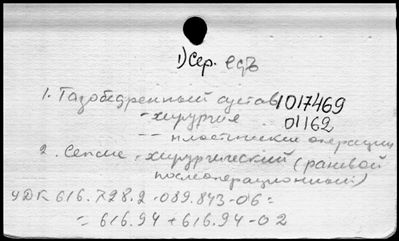 1) Сер. едъ
1. Тазобедренный сустав 1017469
- хирургия 01162
- - пластические операции
2. Сепсис, хирургический (раневой
послеоперационный)
УДК 616.728.2-089.843-06:
= 616.94 + 616.94-02